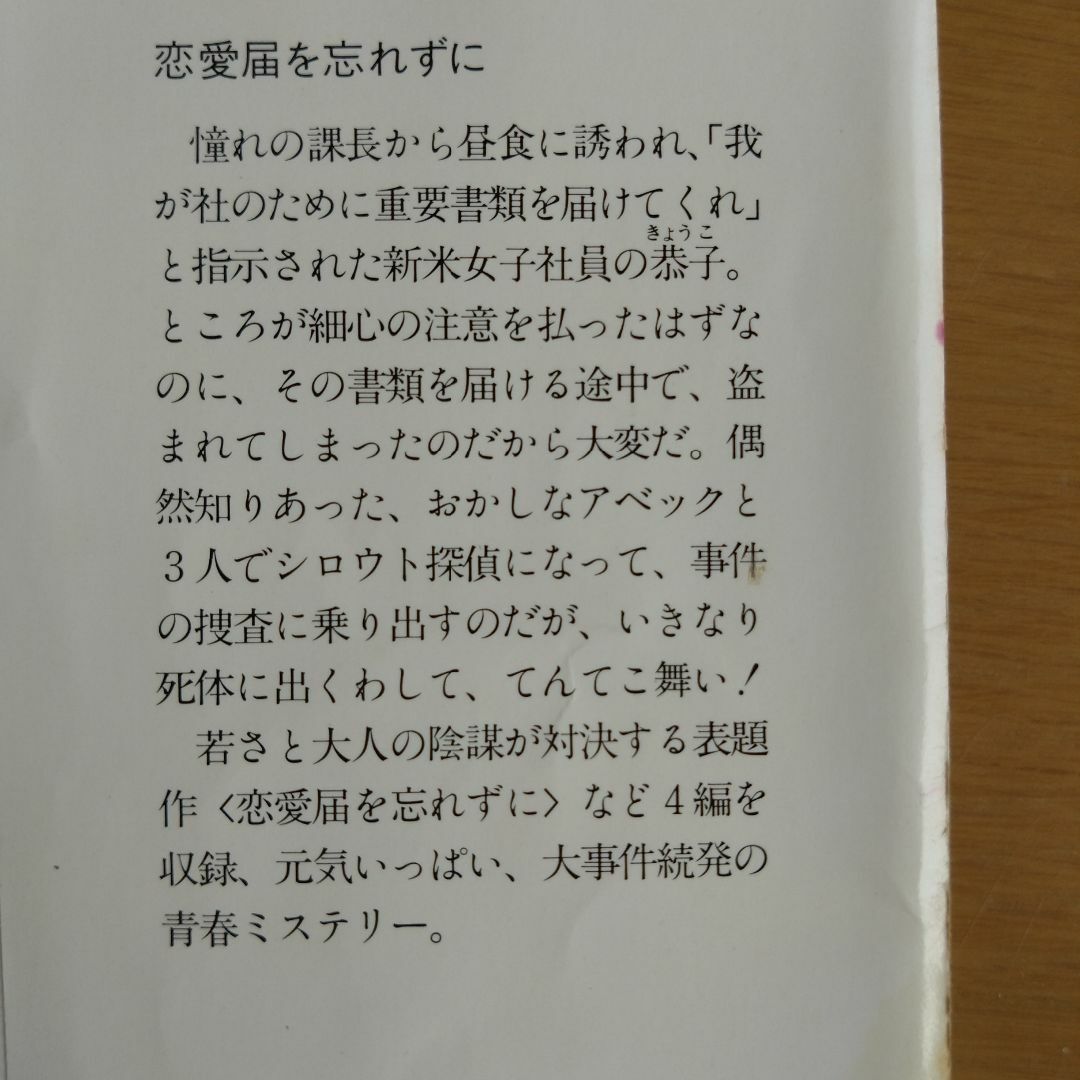 恋愛届を忘れずに
憧れの課長から昼食に誘われ、「我
が社のために重要書類を届けてくれ」
きょうこ
と指示された新米女子社員の恭子。
ところが細心の注意を払ったはずな
のに、その書類を届ける途中で、盗
まれてしまったのだから大変だ。偶
然知りあった、おかしなアベックと
3人でシロウト探偵になって、事件
の捜査に乗り出すのだが、いきなり
死体に出くわして、てんてこ舞い！
若さと大人の陰謀が対決する表題
作〈恋愛届を忘れずに〉など4編を
収録、元気いっぱい、大事件続発の
青春ミステリー。